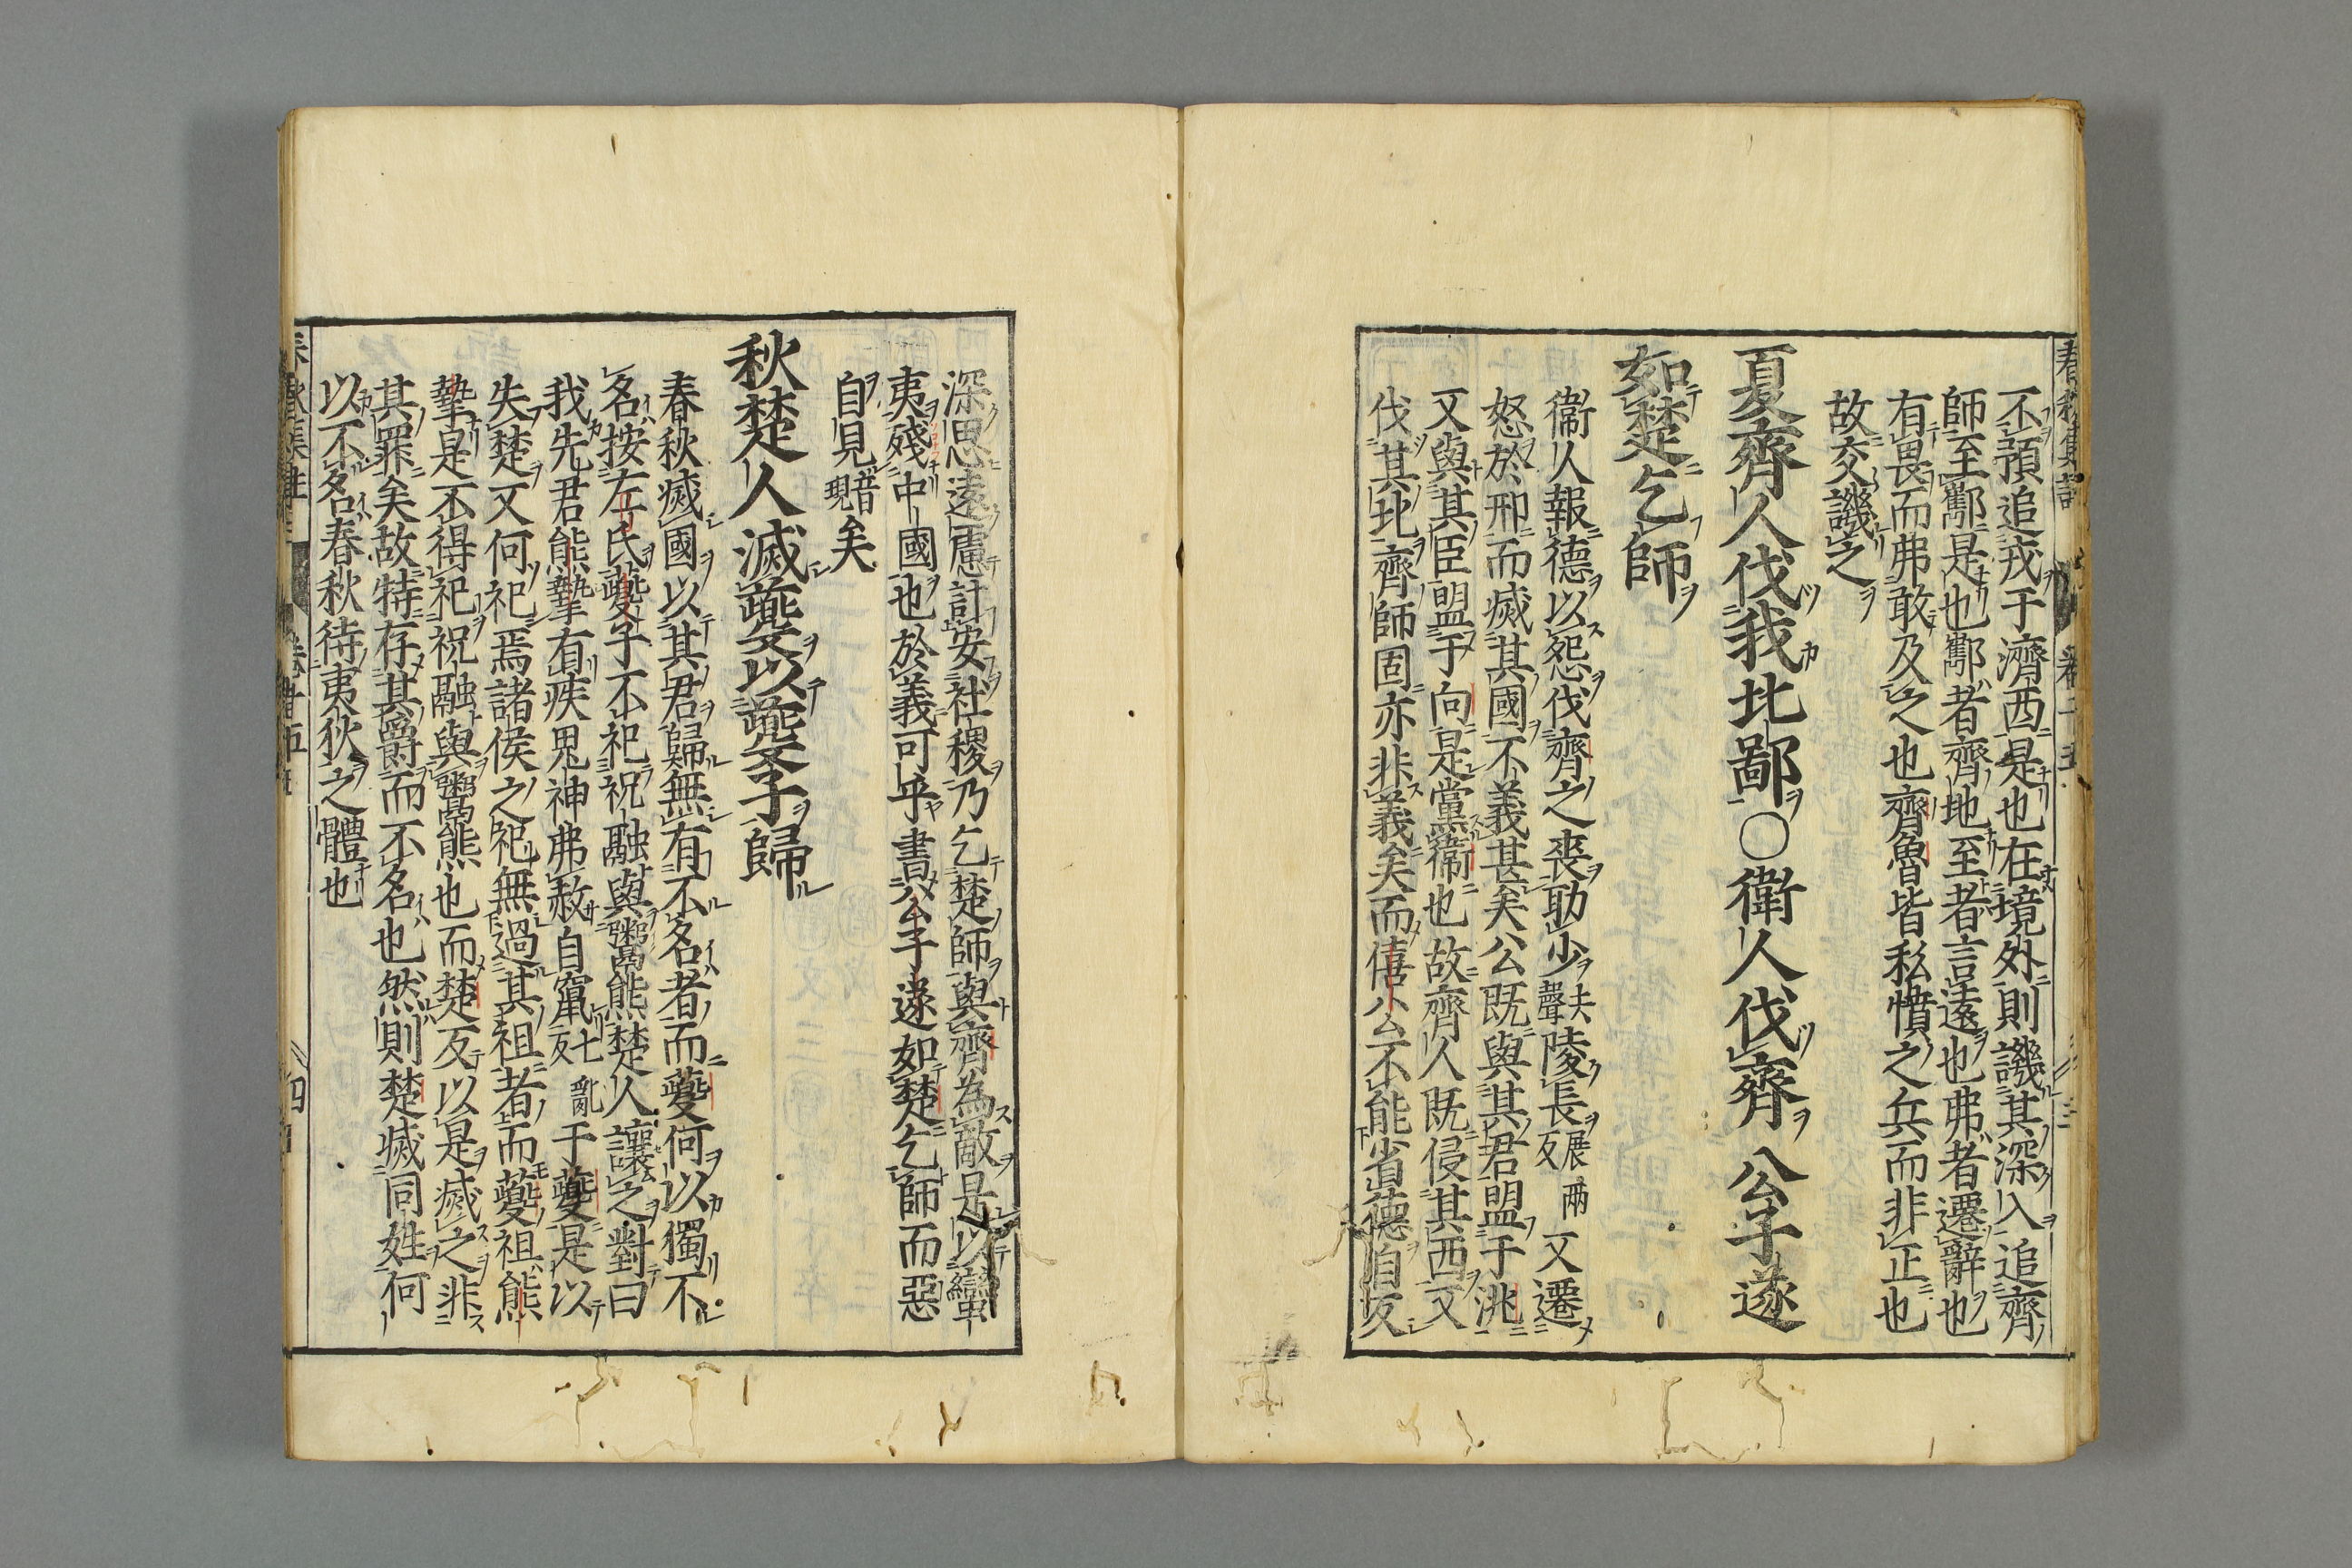 不預追戎于濟西是也在境外則譏其深入追齊
師至酅是也酅者齊地至者言遠也弗者遷辭也
有畏而弗敢及之也齊魯皆私憤之兵而非正也
故交譏之
夏齊人伐我北鄙○衛人伐齊 公子遂
如楚乞師
衞人報德以怨伐齊之喪助少去聲陵長展兩反又遷
怒於邢而滅其國不義甚矣公既與其君盟于洮
又與其臣盟于向是黨衞也故齊人既侵其西又
伐其北齊師固亦非義矣而僖公不能省德自反
深思遠慮計安社稷乃乞楚師與齊為敵是以蠻
夷殘中國也於義可乎書公子遂如楚乞師而惡
自見音現矣
秋楚人滅夔以夔子歸
春秋滅國以其君歸無有不名者而夔何以獨不
名按左氏夔子不祀祝融與鬻熊楚人讓之對曰
我先君熊摯有疾鬼神弗赦自竄七亂反于夔是以
失楚又何祀焉諸侯之祀無過其祖者而夔祖熊
摯是不得祀祝融與鬻熊也而楚反以是滅之非
其罪矣故特存其爵而不名也然則楚滅同姓何
以不名春秋待夷狄之體也